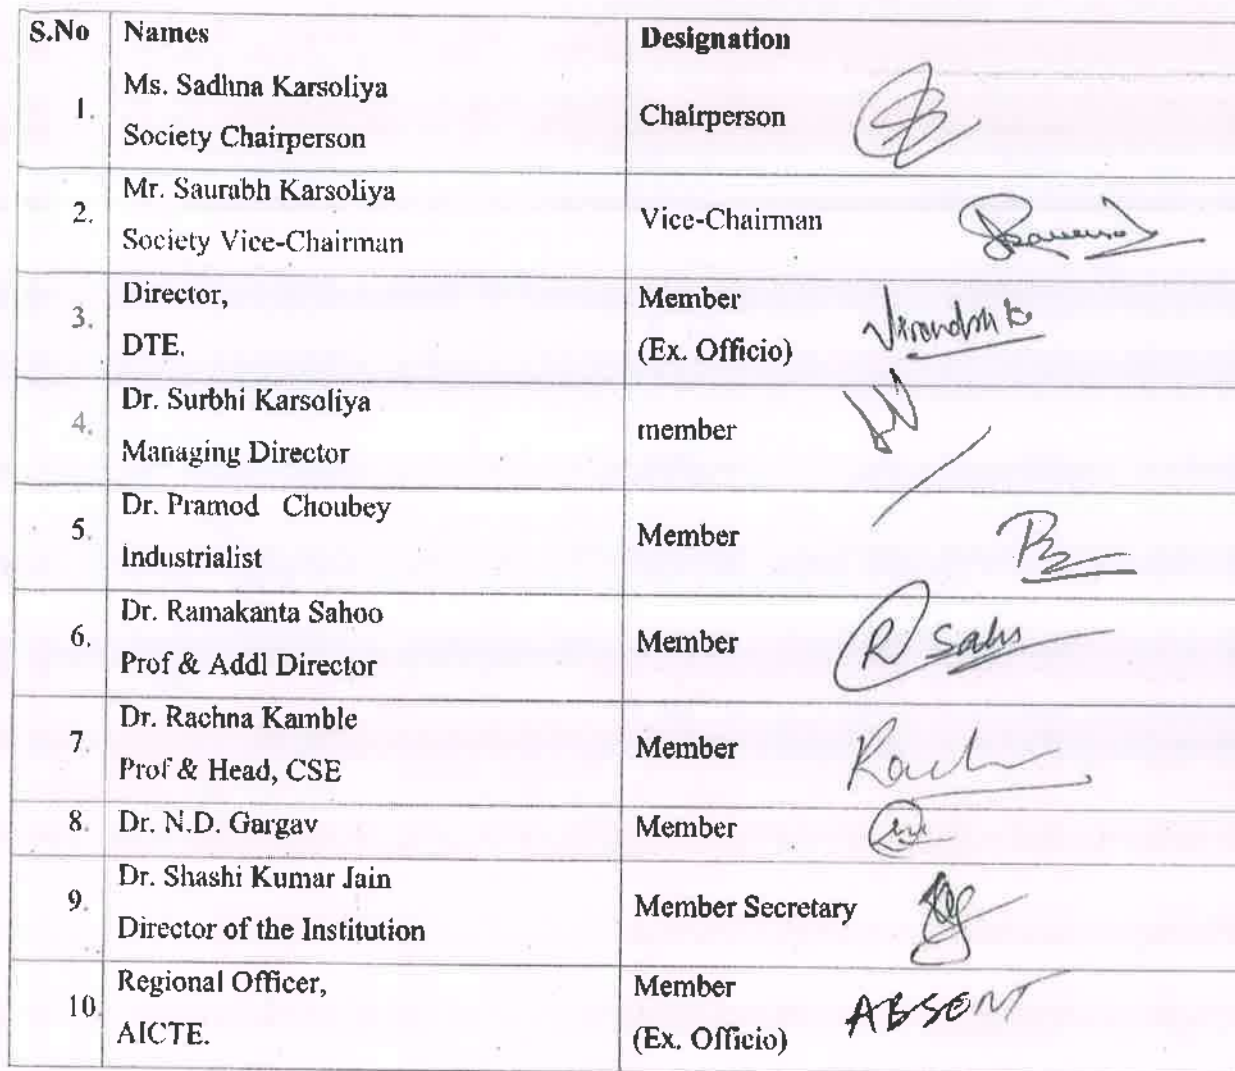 S.No Names Designation
1. Ms. Sadhna Karsoliya
Society Chairperson
Chairperson
2. Mr. Saurabh Karsoliya
Society Vice-Chairman
Vice-Chairman
3. Director,
DTE.
Member
(Ex. Officio)
4. Dr. Surbhi Karsoliya
Managing Director
member
5. Dr. Pramod Choubey
Industrialist
Member
6. Dr. Ramakanta Sahoo
Prof & Addl Director
Member
R Sahu
7. Dr. Rachna Kamble
Prof & Head, CSE
Member
8. Dr. N.D. Gargav
Member
9. Dr. Shashi Kumar Jain
Director of the Institution
Member Secretary
10. Regional Officer,
AICTE.
Member
(Ex. Officio)
ABSENT